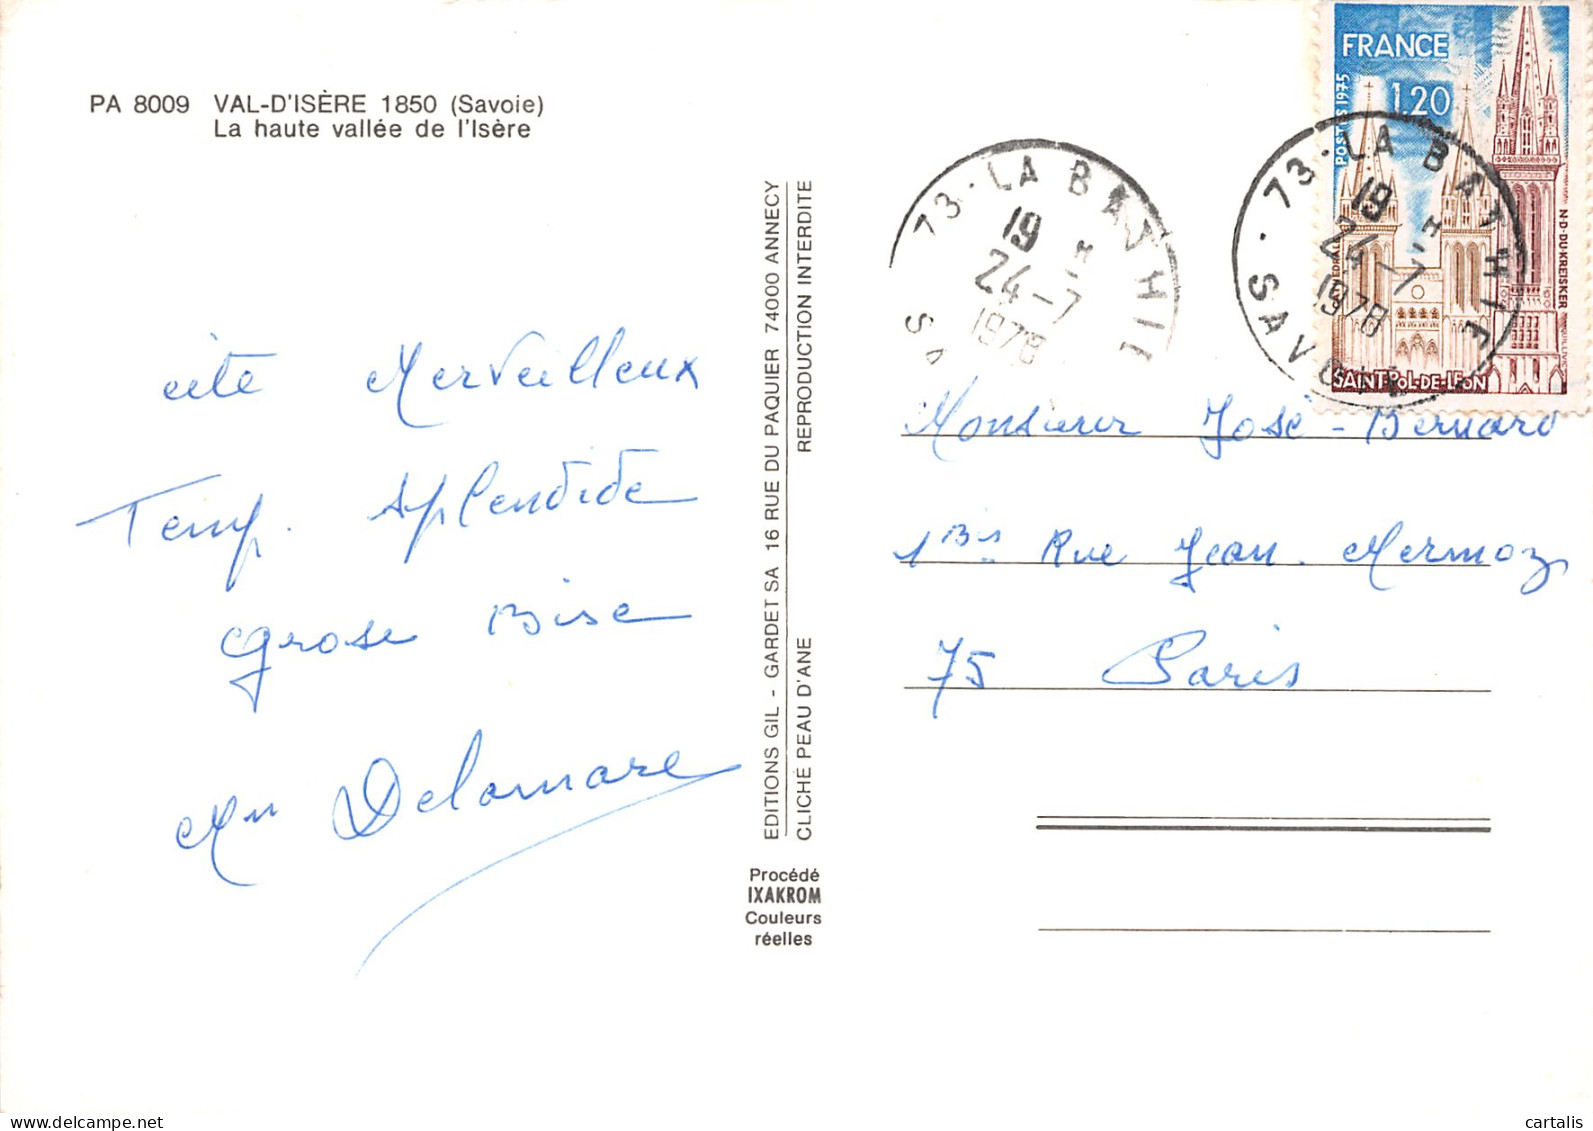 PA 8009 VAL-D'ISÈRE 1850 (Savoie)
La haute vallée de l'Isère
cité Merveilleux
Temp. splendide
grose Bise
Delamare
EDITIONS GIL - GARDET SA 16 RUE DU PAQUIER 74000 ANNECY
CLICHE PEAU D'ANE REPRODUCTION INTERDITE
Procédé
IXAKROM
Couleurs
réelles
73 - LA BATHIE
19 H
24-7
1978
FRANCE
1,20
POSTES 1975
CATHEDRALE
N-D-DU-KREISKER
SAINT-POL-DE-LEON
73 - LA BATHIE
19 H
24-7
1978
SAVOIE
Monsieur José-Bernard
1 Bis Rue Jean. Mermoz
75 Paris
cartalis
www.delcampe.net